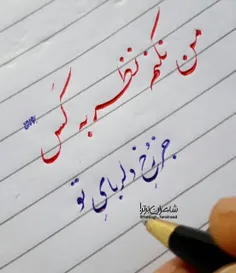 من نکنم نظر به کَس
جز رُخِ دلربای تو